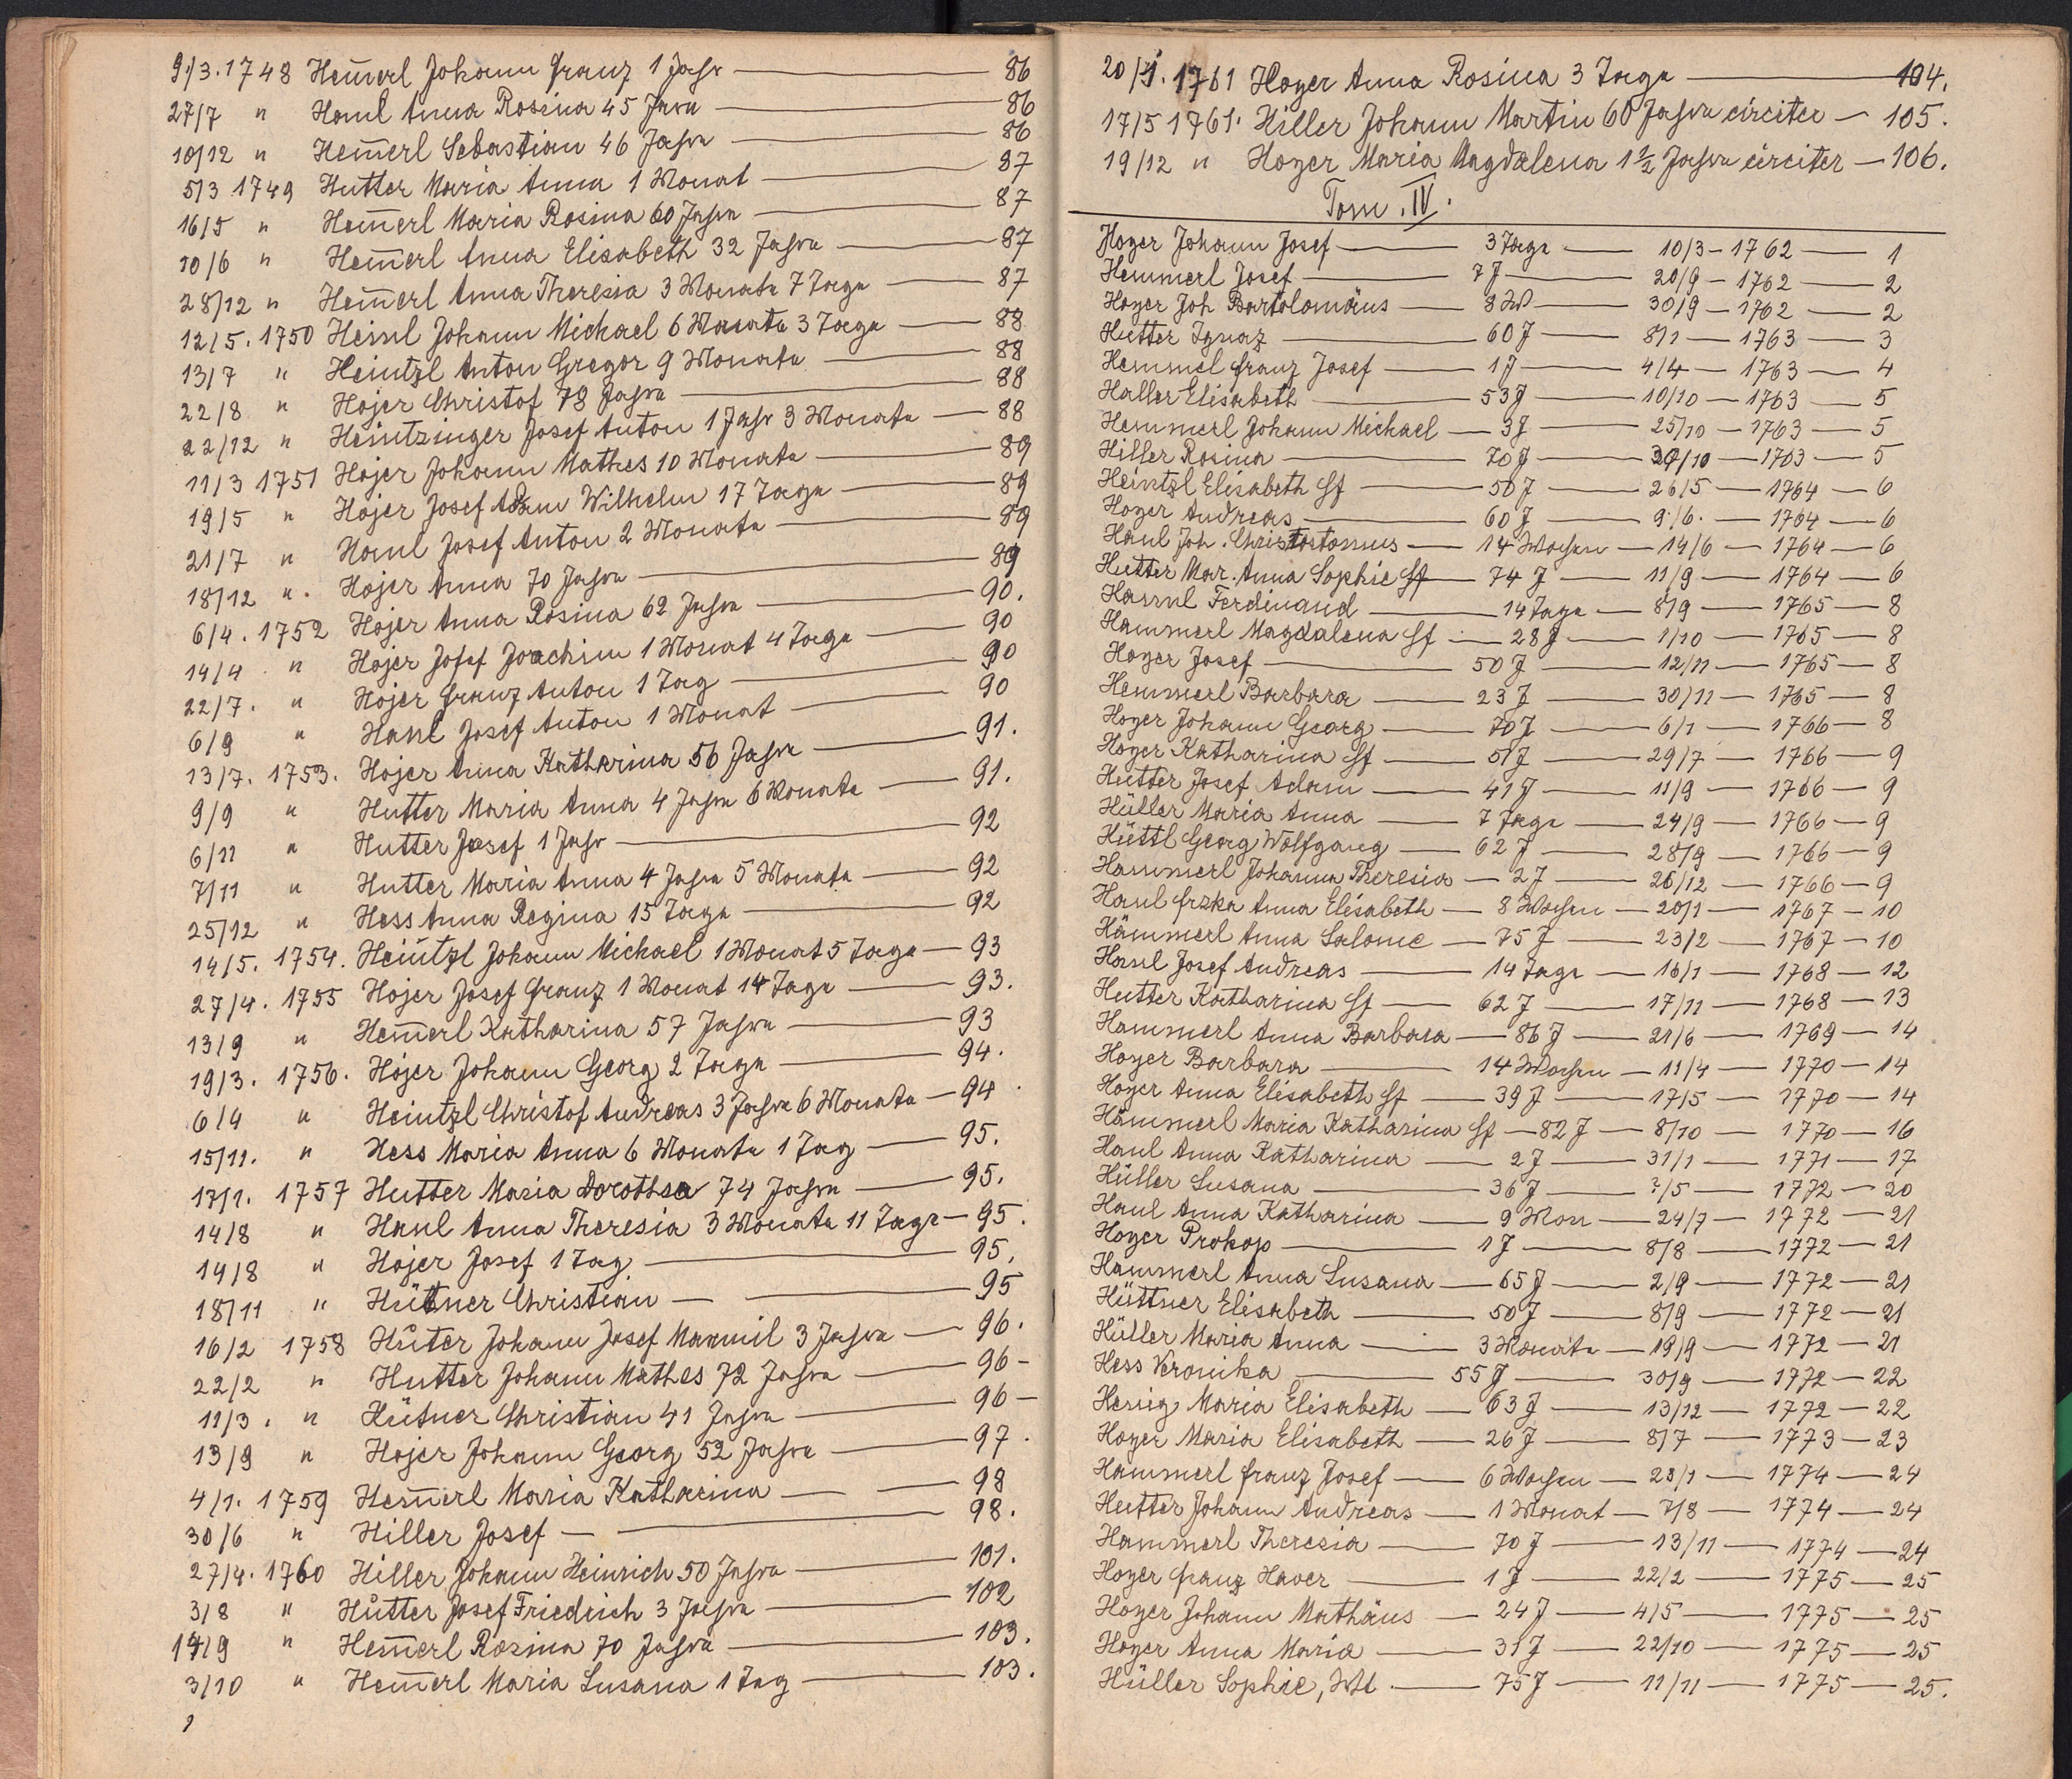 9/3. 1748 Hem̅erl Johann Franz 1 Jahr — 86
27/7 " Hanl Anna Rosina 45 Jahre — 86
10/12 " Hem̅erl Sebastian 46 Jahre — 86
5/3 1749 Hutter Maria Anna 1 Monat — 87
16/5 " Hem̅erl Maria Rosina 60 Jahre — 87
10/6 " Hem̅erl Anna Elisabeth 32 Jahre — 87
28/12 " Hem̅erl Anna Theresia 3 Monate 7 Tage — 87
12/5. 1750 Heinl Johann Michael 6 Monate 3 Tage — 88
13/7 " Heintzl Anton Gregor 9 Monate — 88
22/8 " Hojer Christof 78 Jahre — 88
22/12 " Heintzinger Josef Anton 1 Jahr 3 Monate — 88
11/3 1751 Hojer Johann Mathes 10 Monate — 89
19/5 " Hojer Josef Adam Wilhelm 17 Tage — 89
21/7 " Hanl Josef Anton 2 Monate — 89
18/12 ". Hojer Anna 70 Jahre — 89
6/4. 1752 Hojer Anna Rosina 62 Jahre — 90.
14/4 " Hojer Josef Joachim 1 Monat 4 Tage — 90
22/7. " Hojer Franz Anton 1 Tag — 90
6/9 " Hanl Josef Anton 1 Monat — 90
13/7. 1753. Hojer Anna Katharina 56 Jahre — 91.
9/9 " Hutter Maria Anna 4 Jahre 6 Monate — 91.
6/11 " Hutter Josef 1 Jahr — 92
7/11 " Hutter Maria Anna 4 Jahre 5 Monate — 92
25/12 " Hess Anna Regina 15 Tage — 92
14/5. 1754. Heintzl Johann Michael 1 Monat 5 Tage — 93
27/4. 1755 Hojer Josef Franz 1 Monat 14 Tage — 93.
13/9 " Hem̅erl Katharina 57 Jahre — 93
19/3. 1756. Hojer Johann Georg 2 Tage — 94.
6/4 " Heintzl Christof Andreas 3 Jahre 6 Monate — 94
15/11. " Hess Maria Anna 6 Monate 1 Tag — 95.
17/1. 1757 Hutter Maria Dorothea 74 Jahre — 95.
14/8 " Hanl Anna Theresia 3 Monate 11 Tage — 95.
14/8 " Hojer Josef 1 Tag — 95.
18/11 " Hütner Christian — — 95
16/2 1758 Hůter Johann Josef Maxmil 3 Jahre — 96.
22/2 " Hutter Johann Mathes 72 Jahre — 96 -
11/3. " Hütner Christian 41 Jahre — 96 -
13/9 " Hojer Johann Georg 52 Jahre — 97.
4/1. 1759 Hem̅erl Maria Katharina — — 98
30/6 " Hiller Josef — — 98.
27/4. 1760 Hiller Johann Heinrich 50 Jahre — 101.
3/8 " Hůtter Josef Friedrich 3 Jahre — 102
14/9 " Hem̅erl Rosina 70 Jahre — 103.
3/10 " Hem̅erl Maria Susana 1 Tag — 103.
20/1. 1761 Hoyer Anna Rosina 3 Tage — 104.
17/5 1761. Hiller Johann Martin 60 Jahre circiter — 105.
19/12 " Hoyer Maria Magdalena 1½ Jahre circiter — 106.
Tom. IV.
Hoyer Johann Josef — 3 Tage — 10/3 - 1762 — 1
Hemmerl Josef — 7 J — 20/9 - 1762 — 2
Hoyer Joh Bartolomäus — 3 W — 30/9 - 1762 — 2
Hutter Ignaz — 60 J — 8/1 — 1763 — 3
Hemmel Franz Josef — 1 J — 4/4 — 1763 — 4
Haller Elisabeth — 53 J — 10/10 — 1763 — 5
Hemmerl Johann Michael — 3 J — 25/10 — 1763 — 5
Hiller Rosina — 70 J — 30/10 — 1763 — 5
Heintzl Elisabeth Hf — 50 J — 26/5 — 1764 — 6
Hoyer Andreas — 60 J — 9/6. — 1764 — 6
Hanl Joh. Christostomus — 14 Wochen — 14/6 — 1764 — 6
Hutter Mar. Anna Sophie Hf — 74 J — 11/9 — 1764 — 6
Hamml Ferdinand — 14 Tage — 8/9 — 1765 — 8
Hammerl Magdalena Hf — 28 J — 1/10 — 1765 — 8
Hoyer Josef — 50 J — 12/11 — 1765 — 8
Hemmerl Barbara — 23 J — 30/11 — 1765 — 8
Hoyer Johann Georg — 70 J — 6/1 — 1766 — 8
Hoyer Katharina Hf — 51 J — 29/7 — 1766 — 9
Hutter Josef Adam — 41 J — 11/9 — 1766 — 9
Hüller Maria Anna — 7 Tage — 24/9 — 1766 — 9
Hüttl Georg Wolfgang — 62 J — 28/9 — 1766 — 9
Hammerl Johanna Theresia — 2 J — 26/12 — 1766 — 9
Hanl Frzka Anna Elisabeth — 8 Wochen — 20/1 — 1767 — 10
Hämmerl Anna Salome — 75 J — 23/2 — 1767 — 10
Hanl Josef Andreas — 14 Tage — 16/1 — 1768 — 12
Hutter Katharina Hf — 62 J — 17/11 — 1768 — 13
Hammerl Anna Barbara — 86 J — 21/6 — 1769 — 14
Hoyer Barbara — 14 Wochen — 11/4 — 1770 — 14
Hoyer Anna Elisabeth Hf — 39 J — 17/5 — 1770 — 14
Hämmerl Maria Katharina Hf — 82 J — 8/10 — 1770 — 16
Hanl Anna Katharina — 2 J — 31/1 — 1771 — 17
Hüller Susana — 36 J — ?/5 — 1772 — 20
Hanl Anna Katharina — 9 Mon — 24/7 — 1772 — 21
Hoyer Prokop — 1 J — 8/8 — 1772 — 21
Hammerl Anna Susana — 65 J — 2/9 — 1772 — 21
Hüttner Elisabeth — 50 J — 8/9 — 1772 — 21
Hüller Maria Anna — 3 Monate — 19/9 — 1772 — 21
Hess Veronika — 55 J — 30/9 — 1772 — 22
Hernig Maria Elisabeth — 63 J — 13/12 — 1772 — 22
Hoyer Maria Elisabeth — 26 J — 8/7 — 1773 — 23
Hammerl Franz Josef — 6 Wochen — 23/1 — 1774 — 24
Hutter Johann Andreas — 1 Monat — 7/8 — 1774 — 24
Hammerl Theresia — 70 J — 13/11 — 1774 — 24
Hoyer Franz Haver — 1 J — 22/2 — 1775 — 25
Hoyer Johann Mathäus — 24 J — 4/5 — 1775 — 25
Hoyer Anna Maria — 31 J — 22/10 — 1775 — 25
Hüller Sophie, Wt. — 75 J — 11/11 — 1775 — 25.